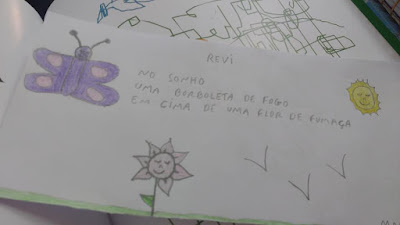 REVI
NO SONHO
UMA BORBOLETA DE FOGO
EM CIMA DE UMA FLOR DE FUMAÇA